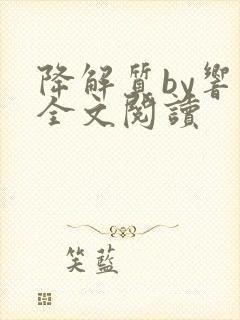 降解質by響
全文閱讀
笑藍